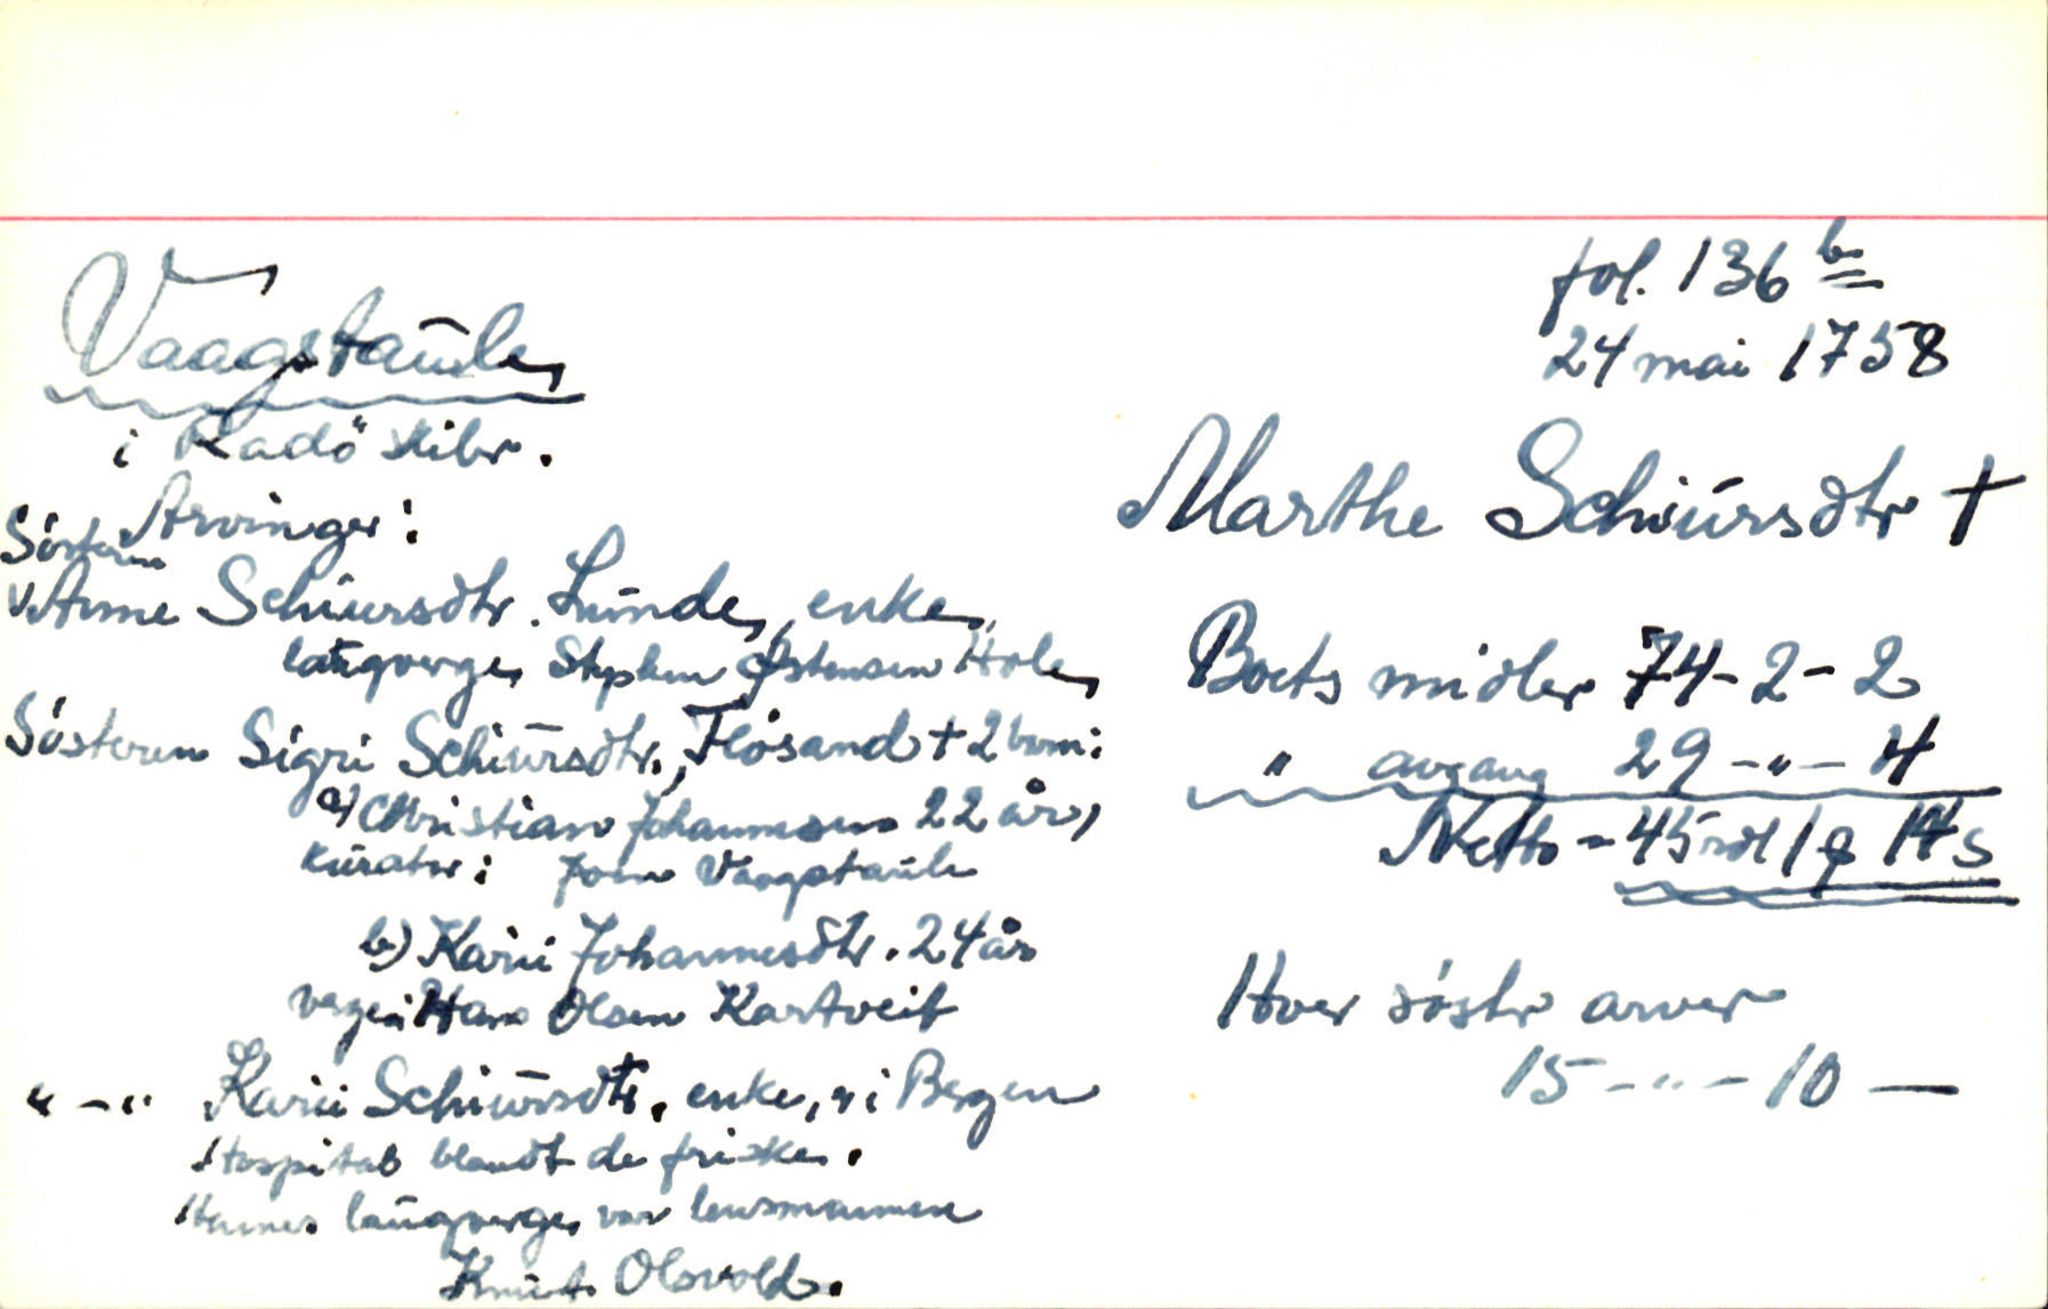 Vaagstaule
i Radö skibr.
Arvinger:
Søsteren
Anne Schiursdtr. Lunde, enke,
laugverge, Stephen Østensen Hole,
Søsteren Sigri Schiursdtr., Flosand + 2 barn:
a) Christian Johannesen 22 år,
kurator: Joen Vaagstaule
b) Kari Johannesdtr. 24 år
verge: Hans Olsen Kartveit
" - " Kari Schiursdtr, enke, i Bergen
Hospital blandt de friske.
Hennes laugverge, var lensmannen
Knut Olsvold.
fol. 136 b
24 mai 1758
Marthe Schiursdtr †
Boets midler 74-2-2
" avgang 29-"-4
Netto = 45 rdl 1 ƒ 14 s
Hver søster arver
15-"-10 —